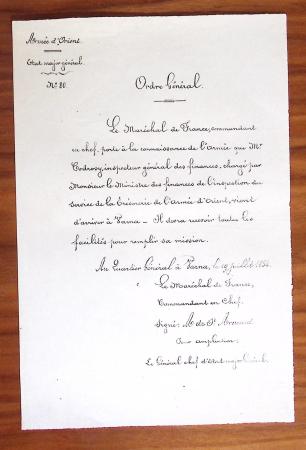 Armée d'Orient.
Etat major général.
N° 80.
Ordre Général.
Le Maréchal de France, commandant
en chef, porte à la connaissance de l'Armée que Mr
inspecteur général des finances, chargé par
Monsieur le Ministre des finances de l'inspection du
service de la Trésorerie de l'Armée d'Orient, vient
d'arriver à Varna — Il devra recevoir toutes les
facilités pour remplir sa mission.
Au Quartier Général à Varna, le 19 juillet 1854.
Le Maréchal de France,
Commandant en Chef.
Signé: de St Arnaud
Pour ampliation:
Le Général chef d'Etat major Général